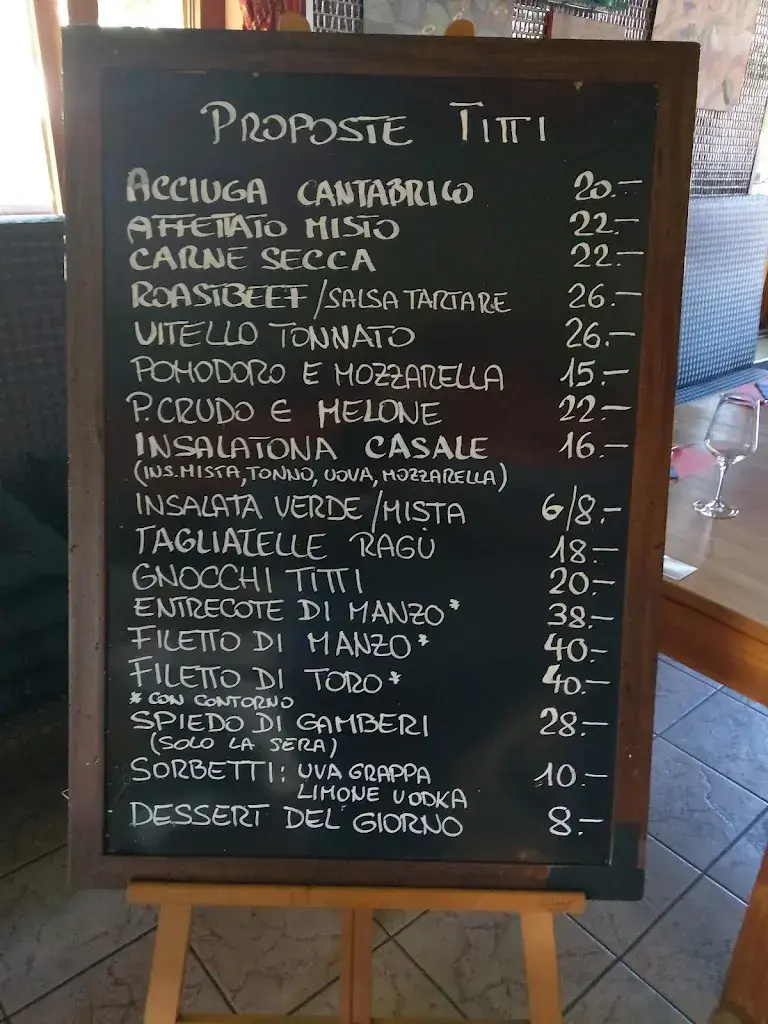 PROPOSTE TITTI
ACCIUGA CANTABRICO 20.–
AFFETTATO MISTO 22.–
CARNE SECCA 22.–
ROASTBEEF/SALSA TARTARE 26.–
VITELLO TONNATO 26.–
POMODORO E MOZZARELLA 15.–
P.CRUDO E MELONE 22.–
INSALATONA CASALE 16.–
(INS.MISTA, TONNO, UOVA, MOZZARELLA)
INSALATA VERDE/MISTA 6/8.–
TAGLIATELLE RAGÙ 18.–
GNOCCHI TITTI 20.–
ENTRECOTE DI MANZO* 38.–
FILETTO DI MANZO* 40.–
FILETTO DI TORO* 40.–
* CON CONTORNO
SPIEDO DI GAMBERI 28.–
(SOLO LA SERA)
SORBETTI: UVA GRAPPA 10.–
LIMONE VODKA
DESSERT DEL GIORNO 8.–